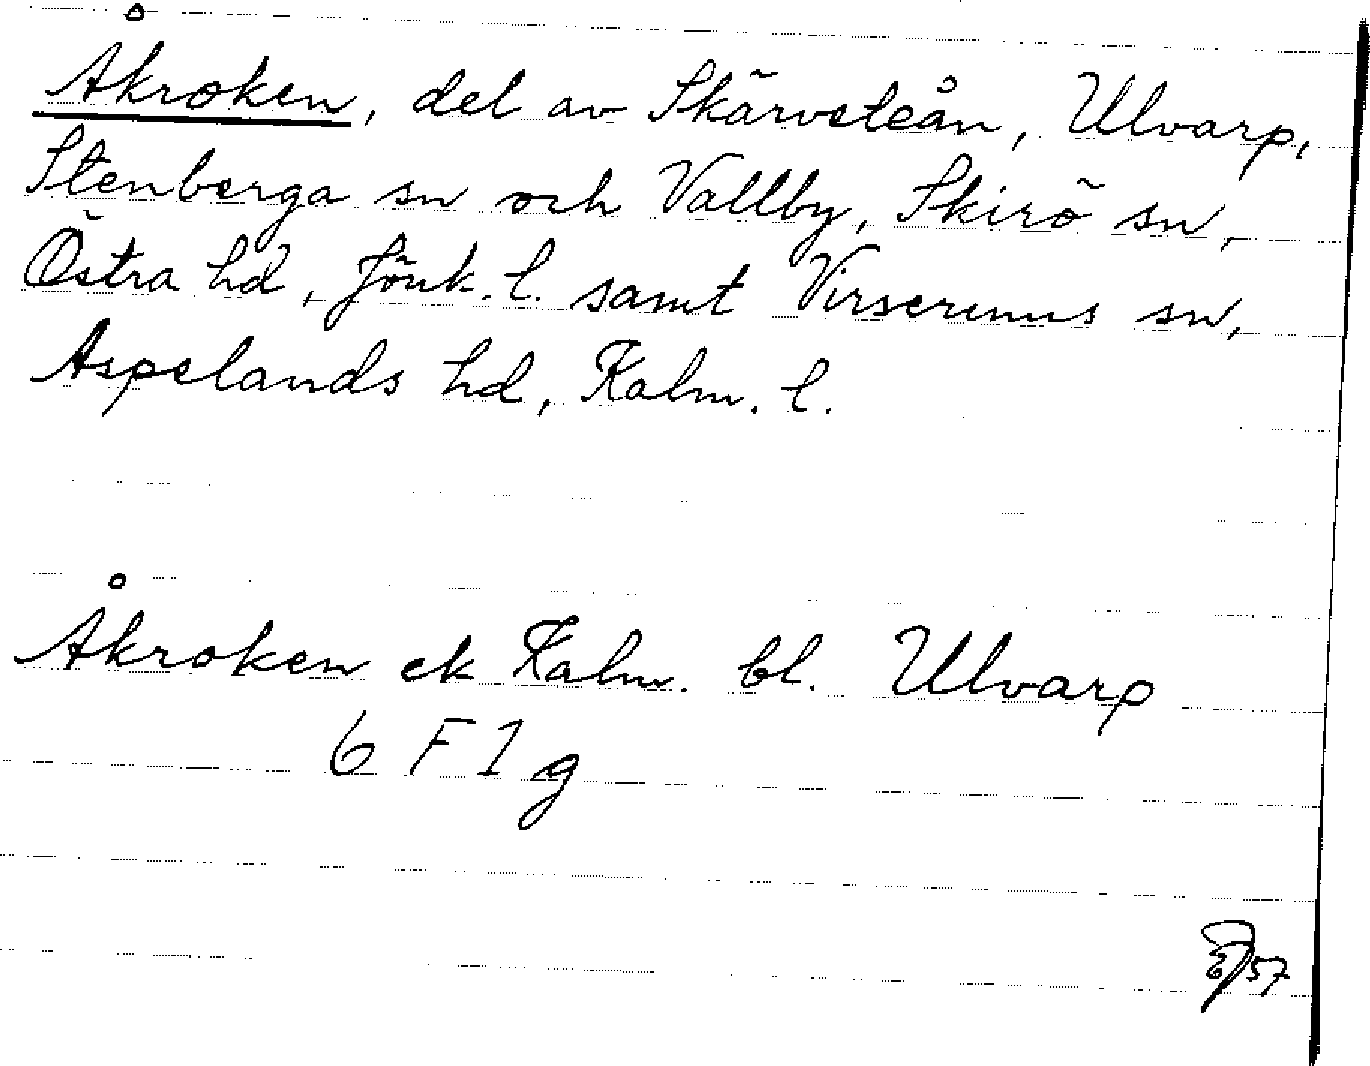 Åkroken, del av Skärveteån, Ulvarp,
Stenberga sn och Vallby, Skirö sn,
Östra hd, Jönk. l. samt Virserums sn,
Aspelands hd, Kalm. l.
Åkroken ek Kalm. bl. Ulvarp
6 F 1 g
57